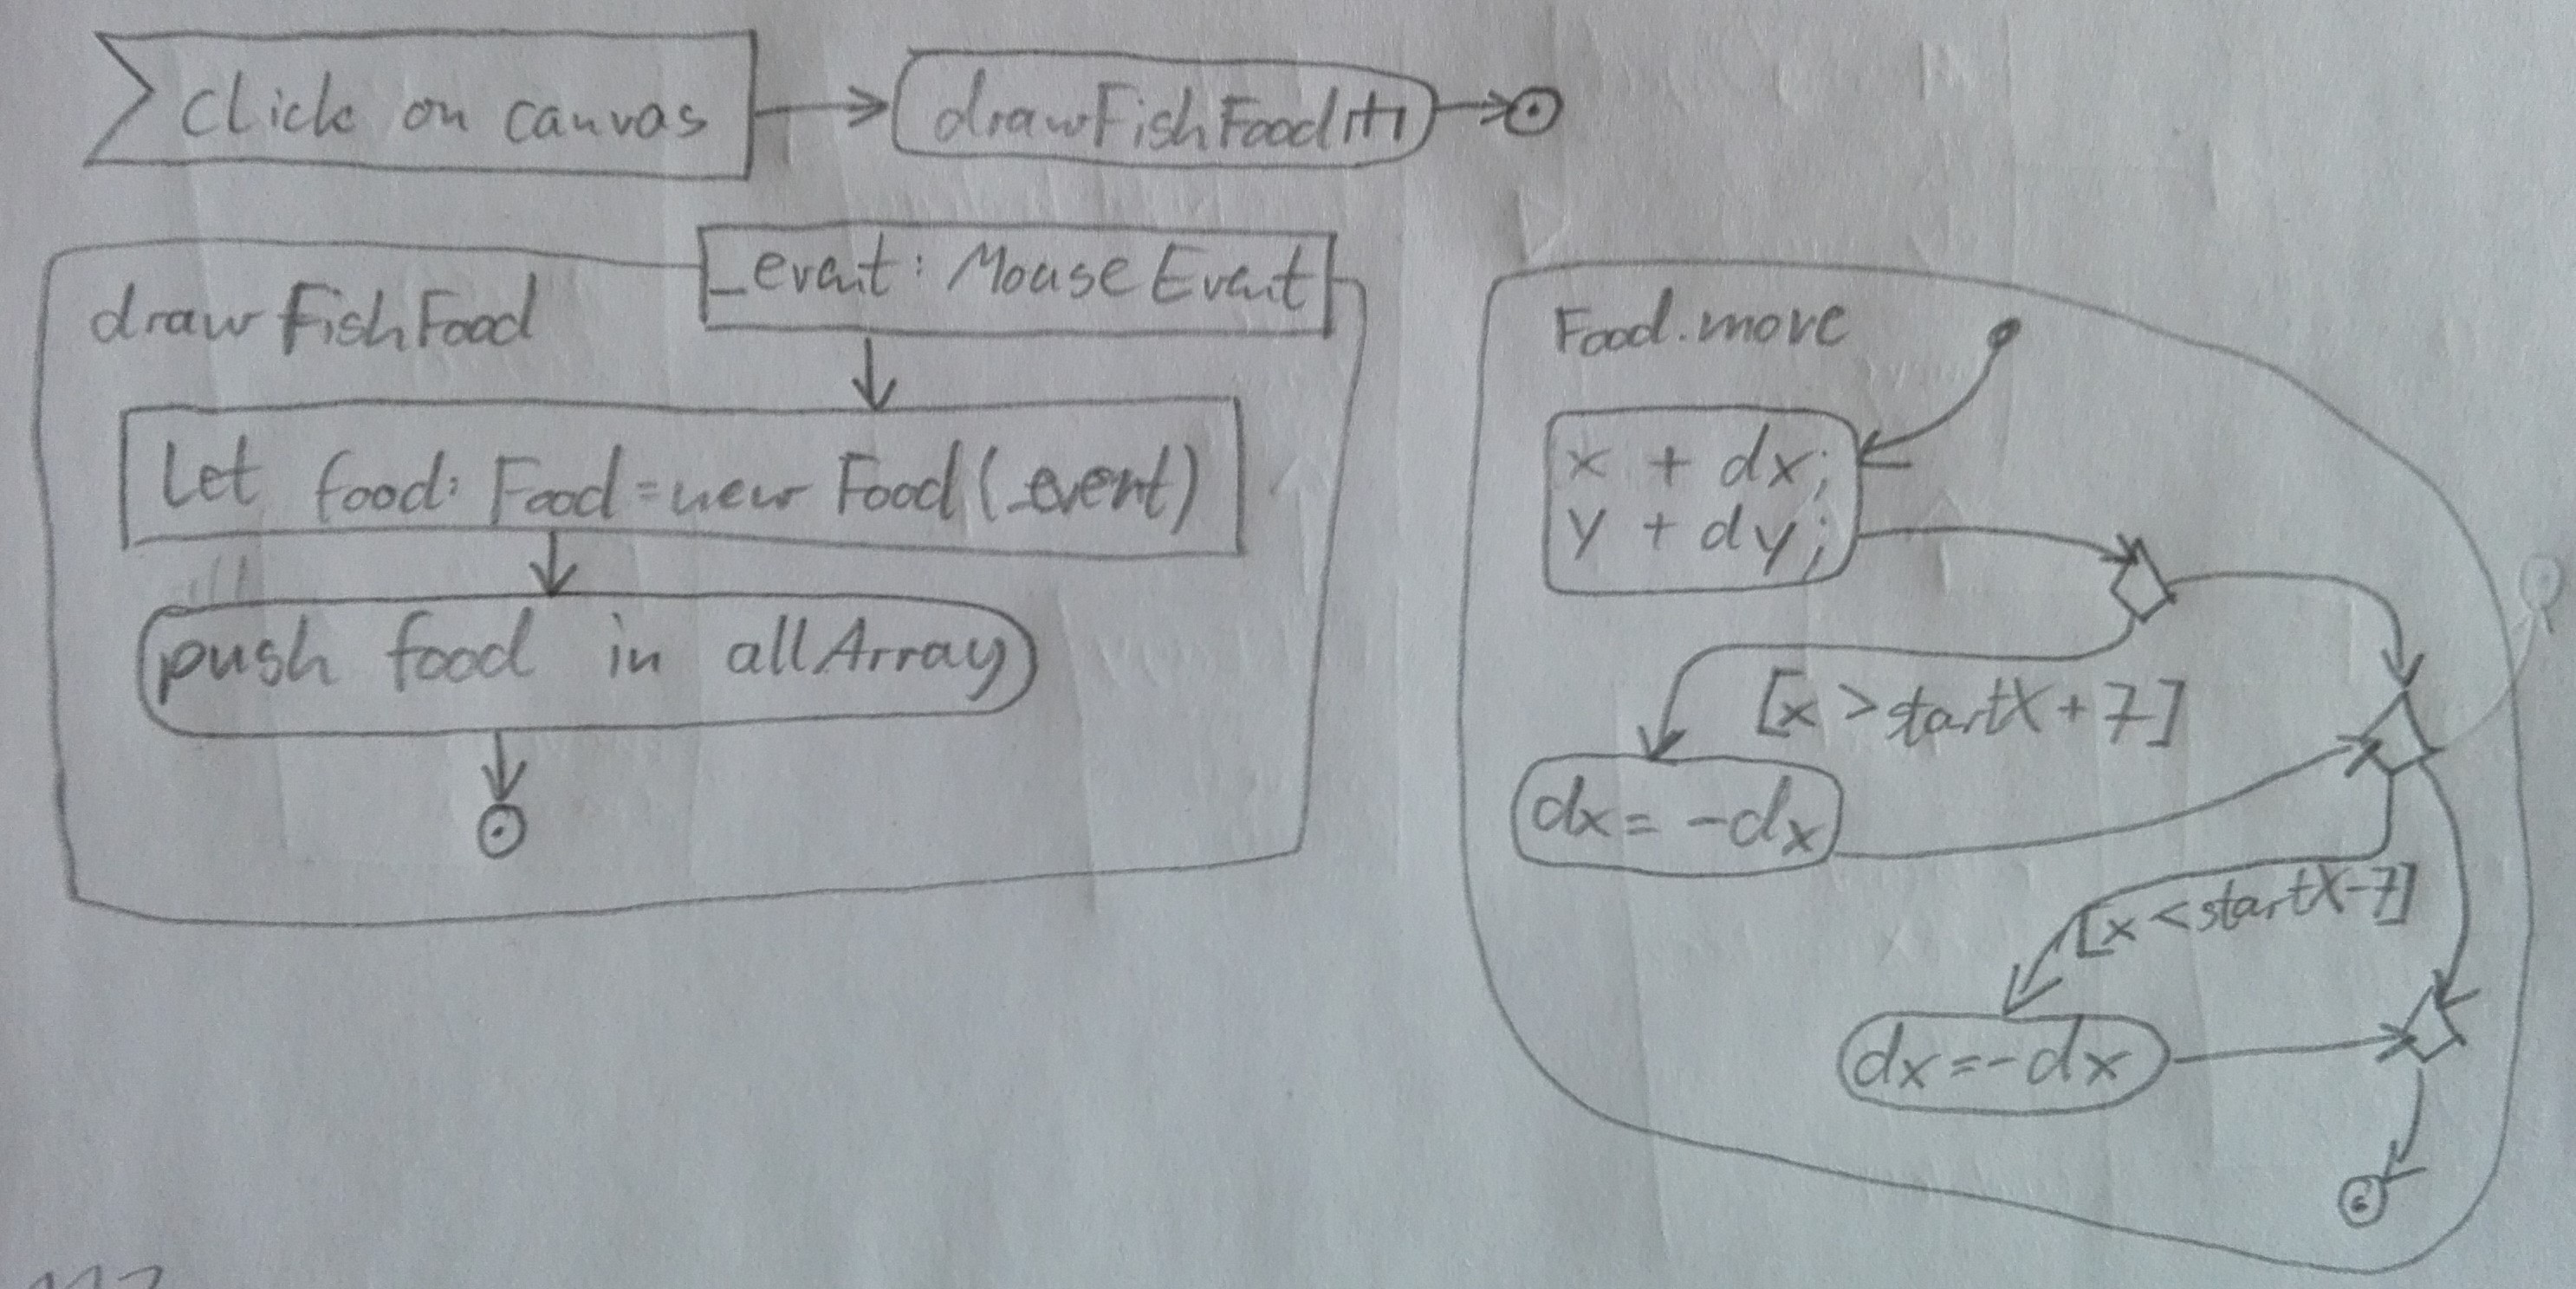 Click on canvas
drawFishFood
_event: MouseEvent
drawFishFood
Let food: Food = new Food(_event)
push food in allArray
Food.move
x + dx;
y + dy;
[x > startX + 7]
dx = -dx
[x < startX-7]
dx = -dx